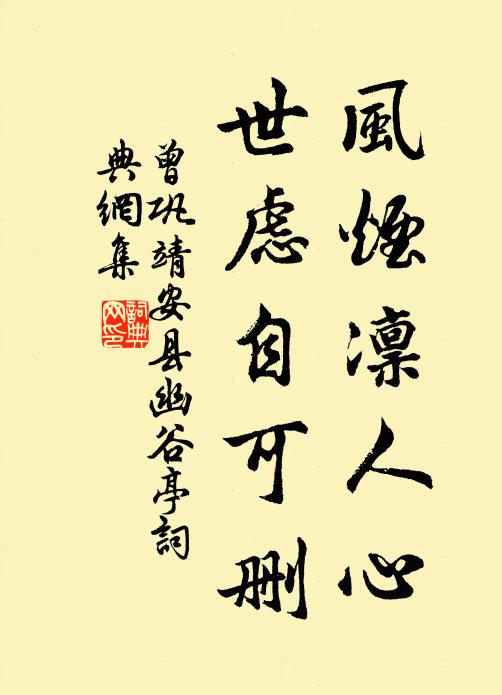 風煙凜人心
世虑自可删
曾巩靖安县幽谷亭詞
典網集
詞典
网印